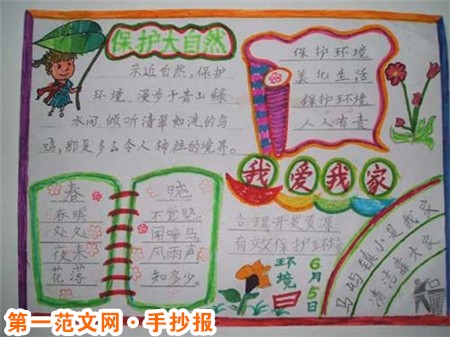 保护大自然
亲近自然,保护
环境,漫步于青山绿
水间,倾听清翠如洗的鸟
鸣,那是多么令人神往的境界。
保护环境
美化生活
保护环境
人人有责
我爱我家
春晓
春眠不觉晓。
处处闻啼鸟。
夜来风雨声
花落知多少。
合理开发资源
有效保护环境
环境日
6月5日
马鸣镇小是我家
清洁靠大家
第一范文网·手抄报